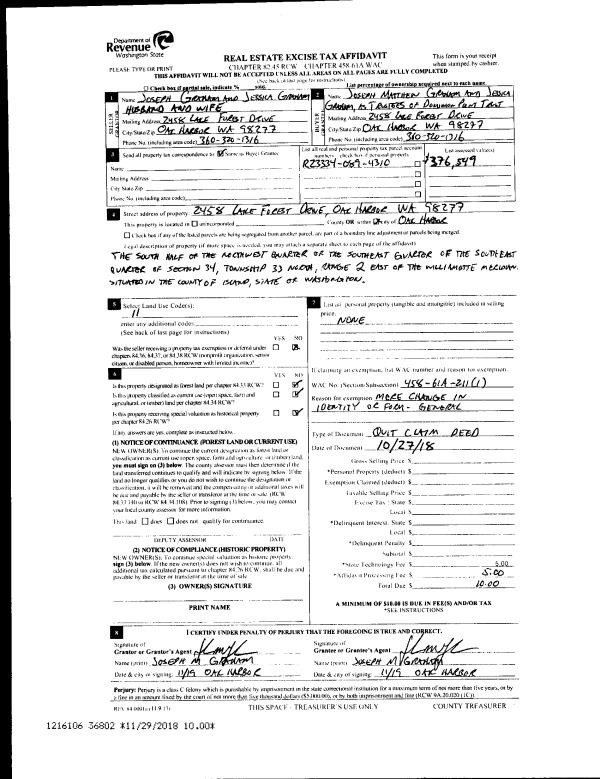 Department of
Revenue
Washington State
PLEASE TYPE OR PRINT
REAL ESTATE EXCISE TAX AFFIDAVIT
CHAPTER 82.45 RCW – CHAPTER 458-61A WAC
This form is your receipt
when stamped by cashier.
THIS AFFIDAVIT WILL NOT BE ACCEPTED UNLESS ALL AREAS ON ALL PAGES ARE FULLY COMPLETED
(See back of last page for instructions)
Check box if partial sale, indicate % sold.
List percentage of ownership acquired next to each name.
1 Name JOSEPH GRAHAM AND JESSICA GRAHAM
HUSBAND AND WIFE
SELLER GRANTOR
Mailing Address 2458 LAKE FOREST DRIVE
City/State/Zip OAK HARBOR WA 98277
Phone No. (including area code) 360-320-1316
2 Name JOSEPH MATHEW GRAHAM AND JESSICA
GRAHAM, AS TRUSTEES OF DOMINION POINT TRUST
BUYER GRANTEE
Mailing Address 2458 LAKE FOREST DRIVE
City/State/Zip OAK HARBOR WA 98277
Phone No. (including area code) 360-320-1316
3 Send all property tax correspondence to: Same as Buyer/Grantee
Name
Mailing Address
City/State/Zip
Phone No. (including area code)
List all real and personal property tax parcel account
numbers – check box if personal property
R23334-069-4310
List assessed value(s)
$376,549
4 Street address of property: 2458 LAKE FOREST DRIVE, OAK HARBOR WA 98277
This property is located in unincorporated County OR within city of OAK HARBOR
Check box if any of the listed parcels are being segregated from another parcel, are part of a boundary line adjustment or parcels being merged.
Legal description of property (if more space is needed, you may attach a separate sheet to each page of the affidavit)
THE SOUTH HALF OF THE NORTHWEST QUARTER OF THE SOUTHEAST QUARTER OF THE SOUTHEAST
QUARTER OF SECTION 34, TOWNSHIP 33 NORTH, RANGE 2 EAST OF THE WILLIAMETTE MERIDIAN.
SITUATED IN THE COUNTY OF ISLAND, STATE OF WASHINGTON.
5 Select Land Use Code(s):
11
enter any additional codes:
(See back of last page for instructions)
YES NO
Was the seller receiving a property tax exemption or deferral under
chapters 84.36, 84.37, or 84.38 RCW (nonprofit organization, senior
citizen, or disabled person, homeowner with limited income)?
6
YES NO
Is this property designated as forest land per chapter 84.33 RCW?
Is this property classified as current use (open space, farm and
agricultural, or timber) land per chapter 84.34 RCW?
Is this property receiving special valuation as historical property
per chapter 84.26 RCW?
If any answers are yes, complete as instructed below.
(1) NOTICE OF CONTINUANCE (FOREST LAND OR CURRENT USE)
NEW OWNER(S): To continue the current designation as forest land or
classification as current use (open space, farm and agriculture, or timber) land,
you must sign on (3) below. The county assessor must then determine if the
land transferred continues to qualify and will indicate by signing below. If the
land no longer qualifies or you do not wish to continue the designation or
classification, it will be removed and the compensating or additional taxes will
be due and payable by the seller or transferor at the time of sale. (RCW
84.33.140 or RCW 84.34.108). Prior to signing (3) below, you may contact
your local county assessor for more information.
This land does does not qualify for continuance.
DEPUTY ASSESSOR DATE
(2) NOTICE OF COMPLIANCE (HISTORIC PROPERTY)
NEW OWNER(S): To continue special valuation as historic property,
sign (3) below. If the new owner(s) does not wish to continue, all
additional tax calculated pursuant to chapter 84.26 RCW, shall be due and
payable by the seller or transferor at the time of sale.
(3) OWNER(S) SIGNATURE
PRINT NAME
7 List all personal property (tangible and intangible) included in selling
price.
NONE
If claiming an exemption, list WAC number and reason for exemption:
WAC No. (Section/Subsection) 458-61A-211(1)
Reason for exemption MERE CHANGE IN
IDENTITY OR FORM - GENERAL
Type of Document QUIT CLAIM DEED
Date of Document 10/27/18
Gross Selling Price $
*Personal Property (deduct) $
Exemption Claimed (deduct) $
Taxable Selling Price $
Excise Tax : State $
Local $
*Delinquent Interest: State $
Local $
*Delinquent Penalty $
Subtotal $
*State Technology Fee $ 5.00
*Affidavit Processing Fee $ 5.00
Total Due $ 10.00
A MINIMUM OF $10.00 IS DUE IN FEE(S) AND/OR TAX
*SEE INSTRUCTIONS
8 I CERTIFY UNDER PENALTY OF PERJURY THAT THE FOREGOING IS TRUE AND CORRECT.
Signature of
Grantor or Grantor's Agent
Name (print) JOSEPH M GRAHAM
Date & city of signing: 11/19 OAK HARBOR
Signature of
Grantee or Grantee's Agent
Name (print) JOSEPH M GRAHAM
Date & city of signing: 11/19 OAK HARBOR
Perjury: Perjury is a class C felony which is punishable by imprisonment in the state correctional institution for a maximum term of not more than five years, or by
a fine in an amount fixed by the court of not more than five thousand dollars ($5,000.00), or by both imprisonment and fine (RCW 9A.20.020 (1C)).
REV 84 0001a (11/9/17)
THIS SPACE - TREASURER'S USE ONLY
COUNTY TREASURER
1216106 36802 *11/29/2018 10.00*